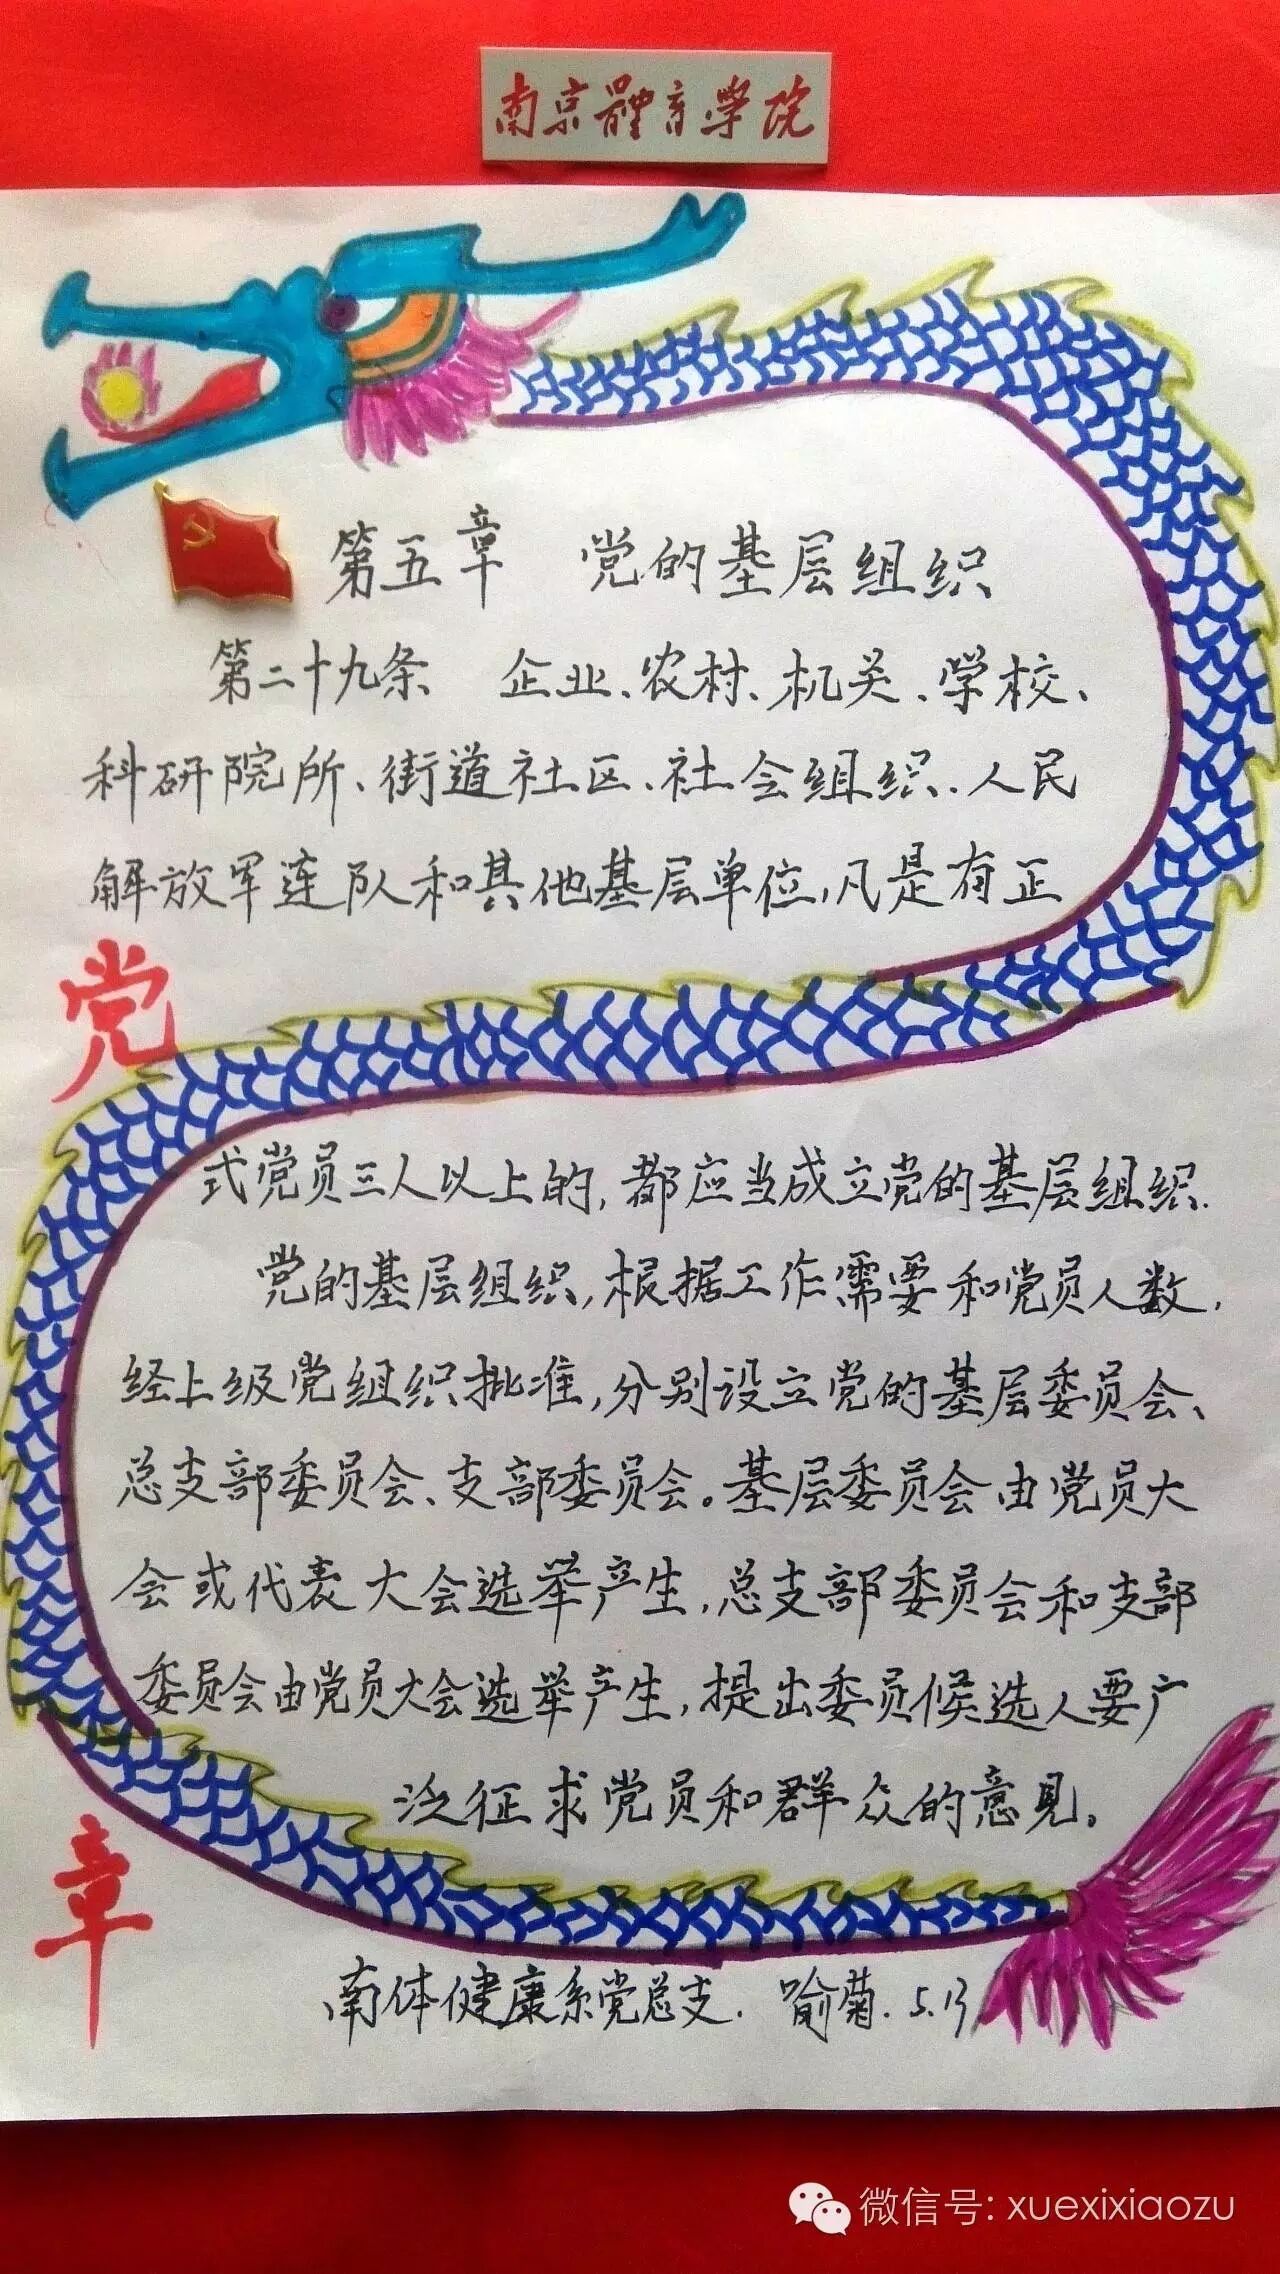 南京體育學院
第五章 党的基层组织
第二十九条 企业、农村、机关、学校、
科研院所、街道社区、社会组织、人民
解放军连队和其他基层单位,凡是有正
党
式党员三人以上的,都应当成立党的基层组织.
党的基层组织,根据工作需要和党员人数,
经上级党组织批准,分别设立党的基层委员会、
总支部委员会、支部委员会。基层委员会由党员大
会或代表大会选举产生,总支部委员会和支部
委员会由党员大会选举产生,提出委员候选人要广
泛征求党员和群众的意见。
章
南体健康系党总支. 喻菊. 5.13
微信号: xuexixiaozu